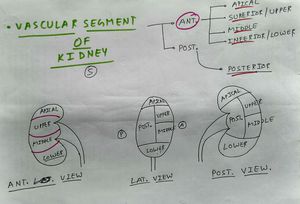 • VASCULAR SEGMENT
OF
KIDNEY
5
ANT.
APICAL
SUPERIOR/UPPER
MIDDLE
INFERIOR/LOWER
POST.
POSTERIOR
APICAL
UPPER
MIDDLE
LOWER
ANT. VIEW
APICAL
UPPER
POST.
MIDDLE
LOWER
P
A
LAT. VIEW
APICAL
UPPER
POST.
MIDDLE
LOWER
POST. VIEW.